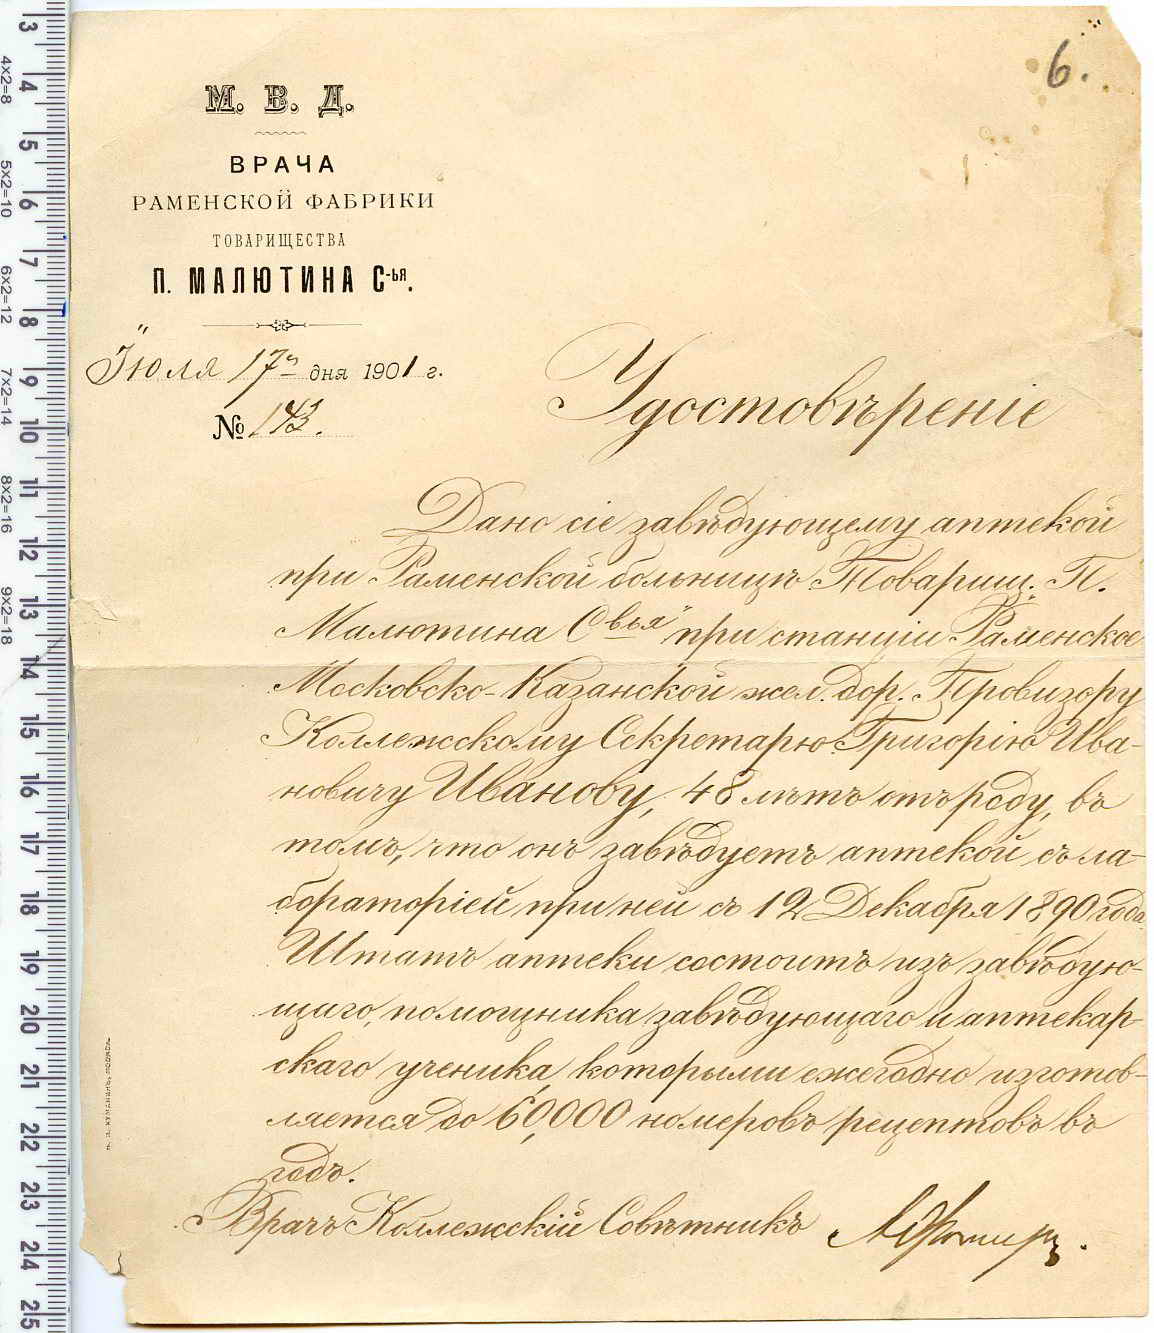 6.
М. В. Д.
ВРАЧА
РАМЕНСКОЙ ФАБРИКИ
ТОВАРИЩЕСТВА
П. МАЛЮТИНА С-ья.
Іюля 17го дня 1901 г.
№ 143.
Удостовѣреніе
Дано сіе завѣдующему аптекой
при Раменской больницѣ Товарищ. П.
Малютина С-вья при станціи Раменское
Московско-Казанской жел. дор. Провизору
Коллежскому Секретарю Григорію Ива-
новичу Иванову, 48 лѣтъ отъ роду, въ
томъ, что онъ завѣдуетъ аптекой съ ла-
бораторіей при ней съ 12 Декабря 1890 года.
Штатъ аптеки состоитъ изъ завѣдую-
щаго, помощника завѣдующаго и аптекар-
скаго ученика, которыми ежегодно изготов-
ляется до 60,000 номеровъ рецептовъ въ
годъ.
Врачъ Коллежскій Совѣтникъ
3
4
5
6
7
8
9
10
11
12
13
14
15
16
17
18
19
20
21
22
23
24
25
4x2=8
5x2=10
6x2=12
7x2=14
8x2=16
9x2=18